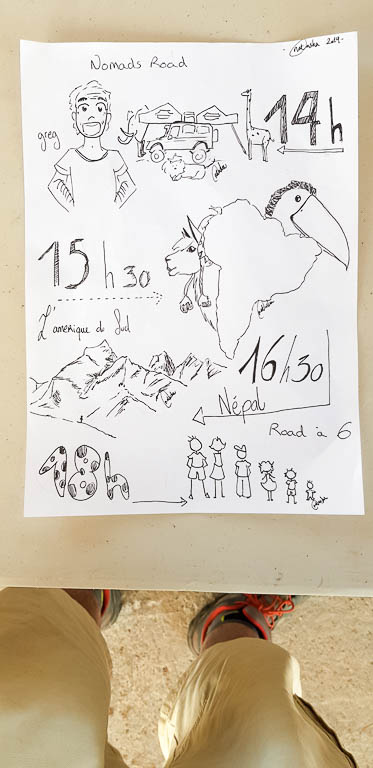 Nomads Road
Natasha 2019.
greg
14h
15h30
L'amérique du Sud
16h30
Népal
Road à 6
18h